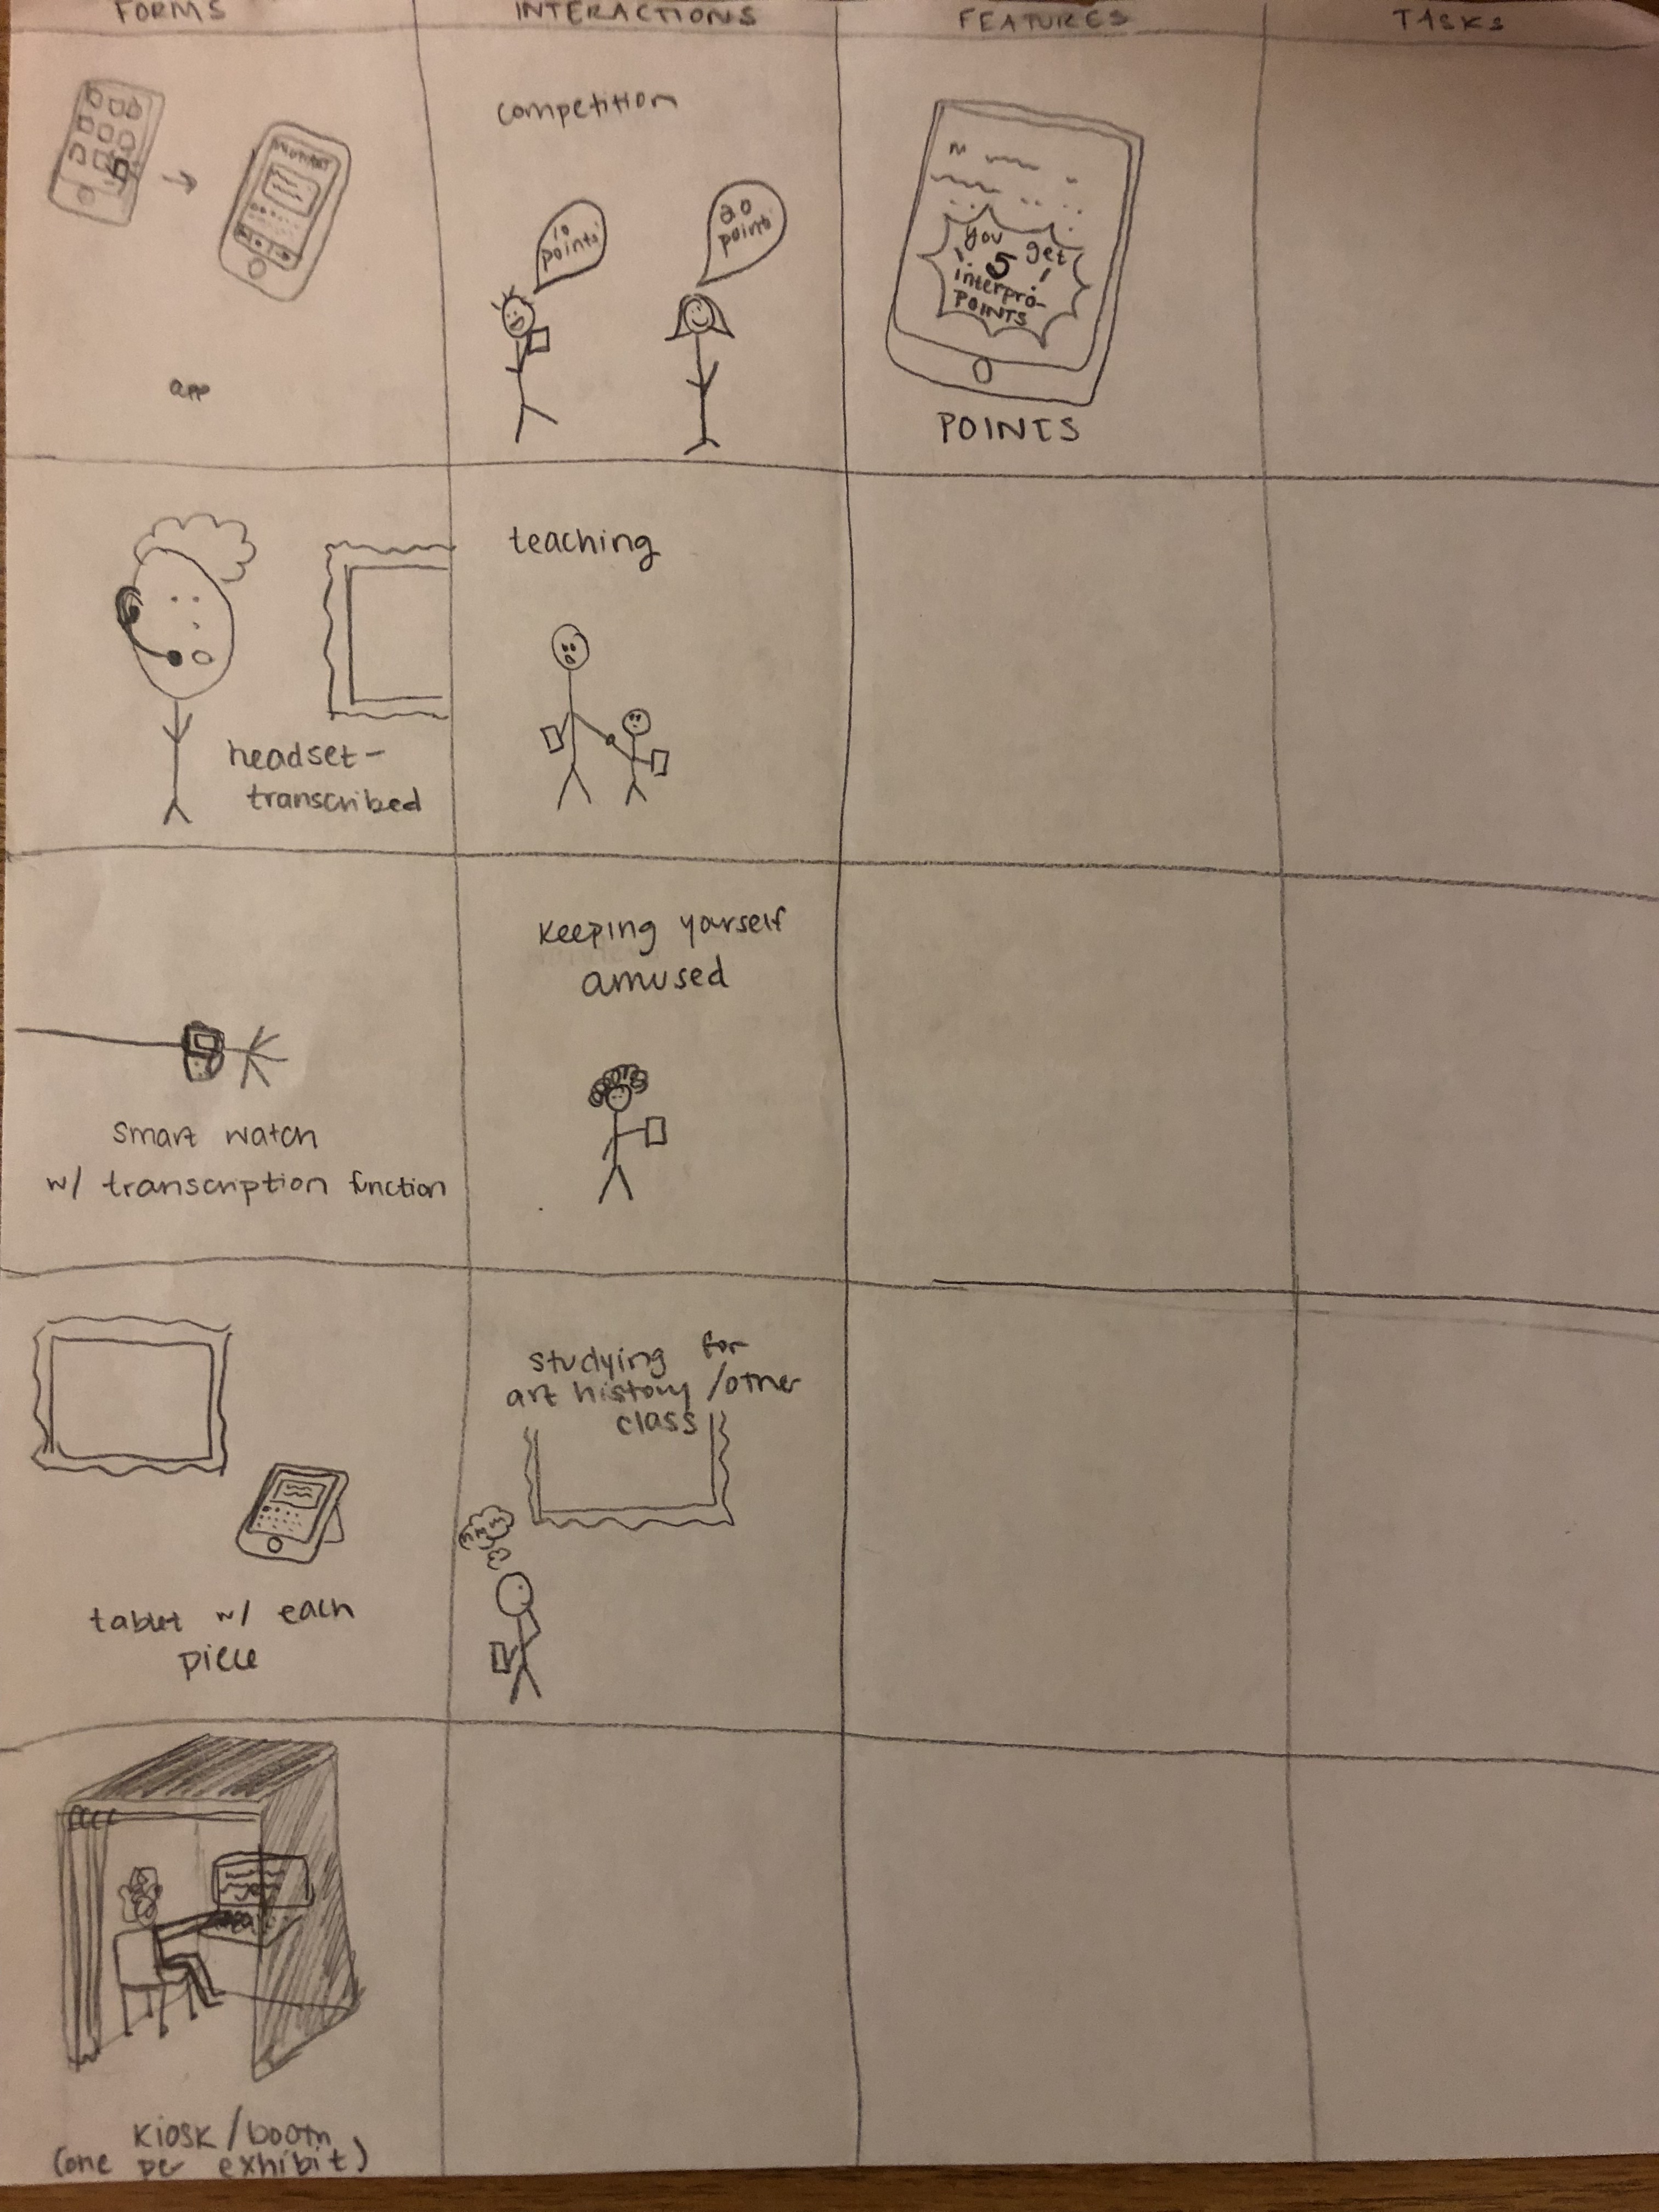 FORMS
INTERACTIONS
FEATURES
TASKS
app
competition
10
points
20
points
you get
5
interpro-
POINTS
!
POINTS
headset-
transcribed
teaching
smart watch
w/ transcription function
keeping yourself
amused
tablet w/ each
piece
studying for
art history/other
class
hmm
kiosk/booth
(one per exhibit)